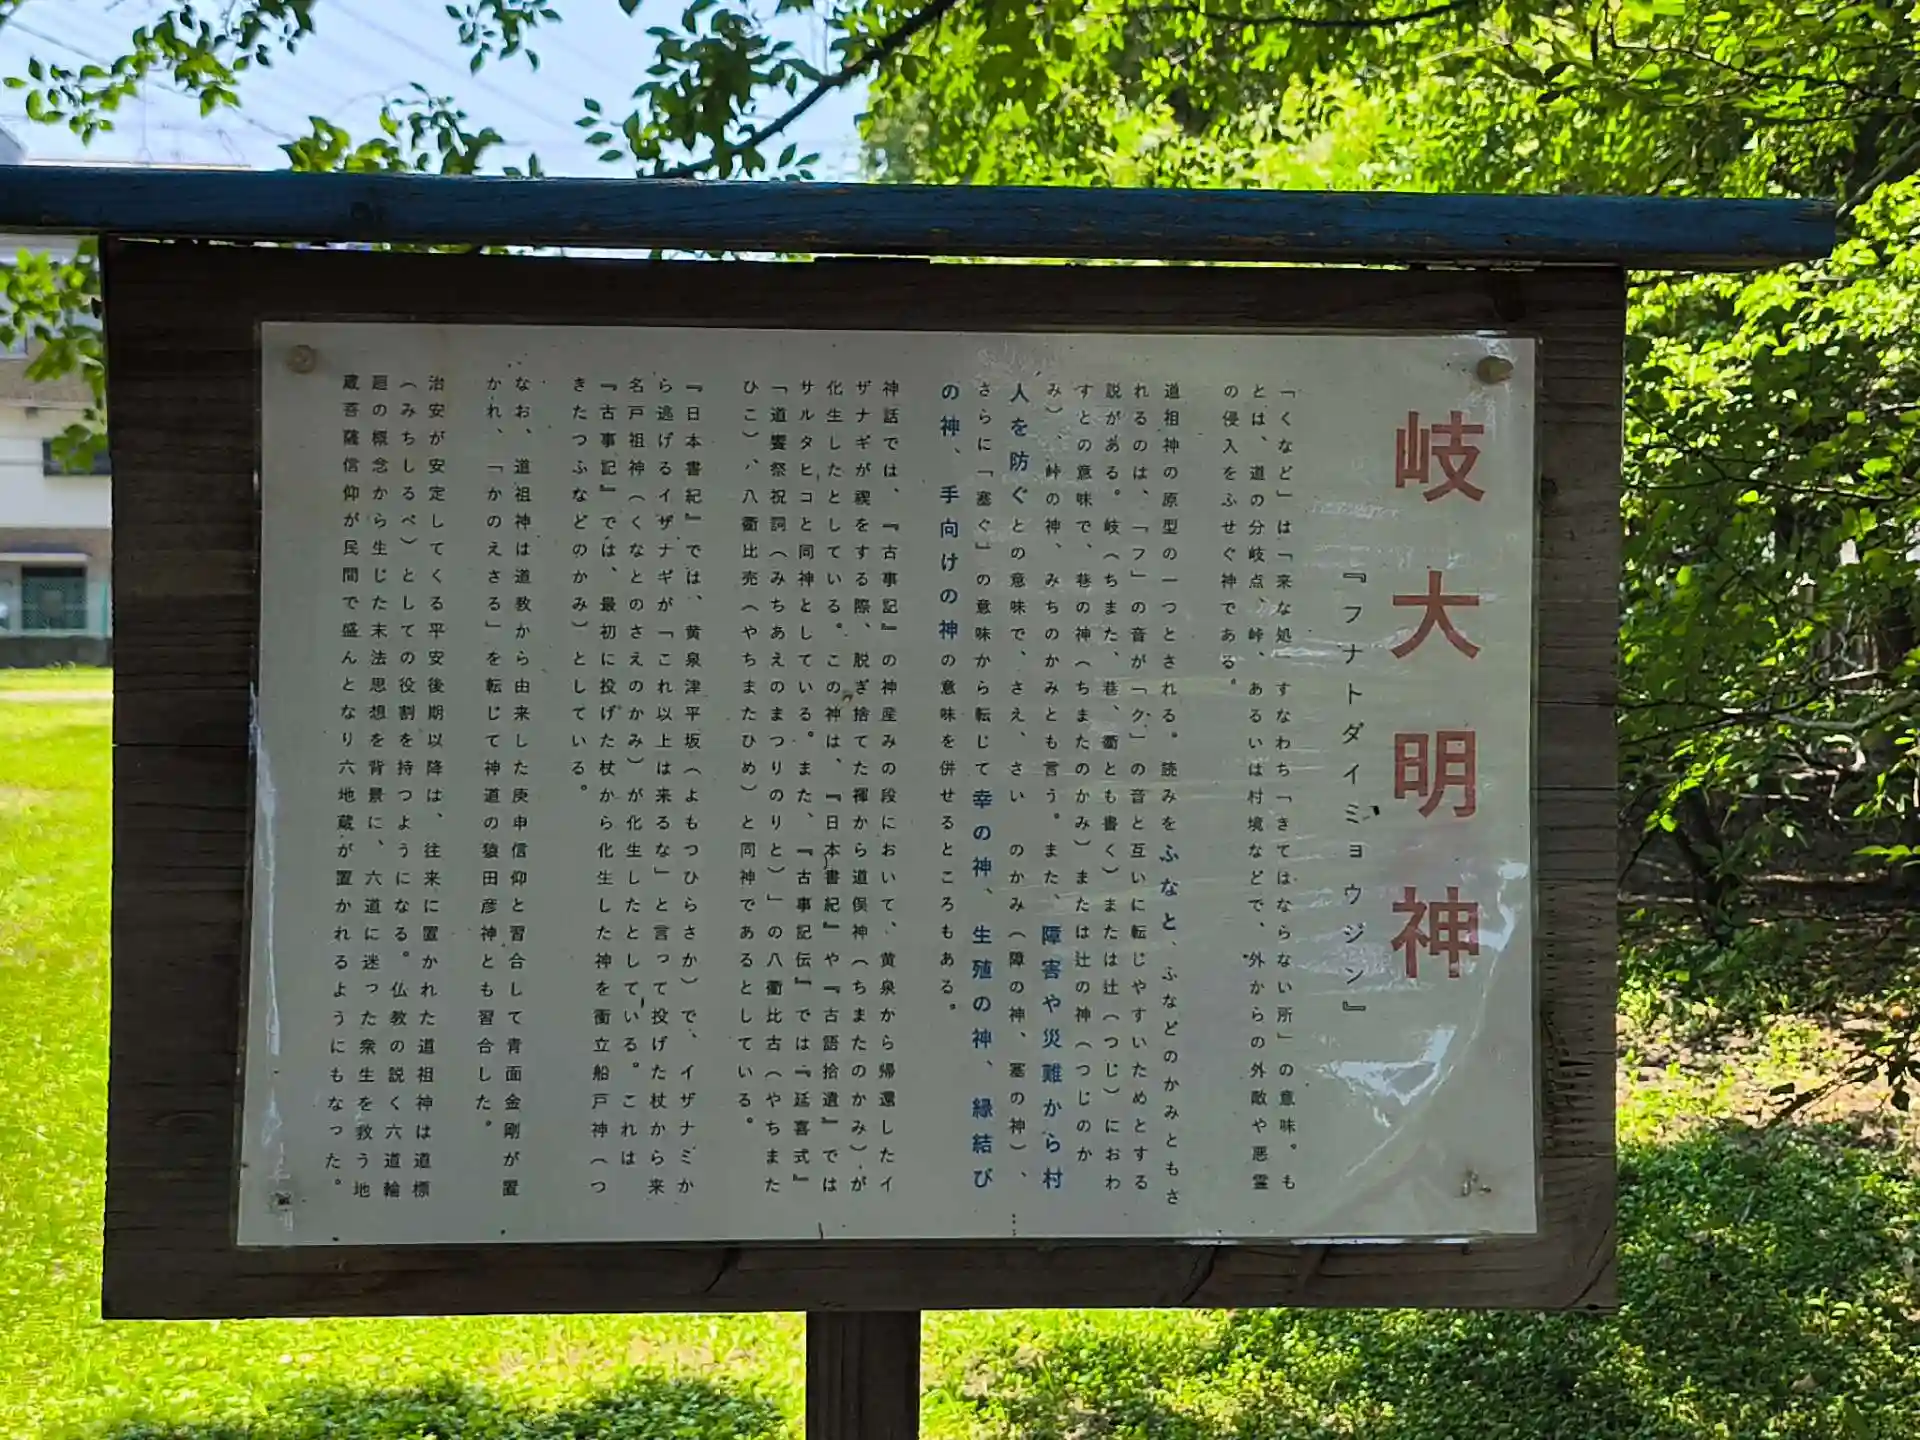 岐大明神
『フナトダイミョウジン』
「くなど」は「来な処」すなわち「きてはならない所」の意味。も
とは、道の分岐点、峠、あるいは村境などで、外からの外敵や悪霊
の侵入をふせぐ神である。
道祖神の原型の一つとされる。読みをふなと、ふなどのかみともさ
れるのは、「フ」の音が「ク」の音と互いに転じやすいためとする
説がある。岐（ちまた、巷、衢とも書く）または辻（つじ）におわ
すとの意味で、巷の神（ちまたのかみ）または辻の神（つじのか
み）、峠の神、みちのかみとも言う。また、障害や災難から村
人を防ぐとの意味で、さえ、さい のかみ（障の神、塞の神）、
さらに「塞ぐ」の意味から転じて幸の神、生殖の神、縁結び
の神、手向けの神の意味を併せるところもある。
神話では、『古事記』の神産みの段において、黄泉から帰還したイ
ザナギが禊をする際、脱ぎ捨てた褌から道俣神（ちまたのかみ）が
化生したとしている。この神は、『日本書紀』や『古語拾遺』では
サルタヒコと同神としている。また、『古事記伝』では『延喜式』
「道饗祭祝詞（みちあえのまつりのりと）」の八衢比古（やちまた
ひこ）、八衢比売（やちまたひめ）と同神であるとしている。
『日本書紀』では、黄泉津平坂（よもつひらさか）で、イザナミか
ら逃げるイザナギが「これ以上は来るな」と言って投げた杖から来
名戸祖神（くなとのさえのかみ）が化生したとしている。これは
『古事記』では、最初に投げた杖から化生した神を衝立船戸神（つ
きたつふなどのかみ）としている。
なお、道祖神は道教から由来した庚申信仰と習合して青面金剛が置
かれ、「かのえさる」を転じて神道の猿田彦神とも習合した。
治安が安定してくる平安後期以降は、往来に置かれた道祖神は道標
（みちしるべ）としての役割を持つようになる。仏教の説く六道輪
廻の概念から生じた末法思想を背景に、六道に迷った衆生を救う地
蔵菩薩信仰が民間で盛んとなり六地蔵が置かれるようにもなった。